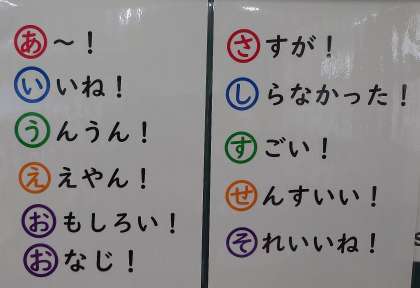 あ～！
いいね！
うんうん！
ええやん！
おもしろい！
おなじ！
さすが！
しらなかった！
すごい！
せんすいい！
それいいね！